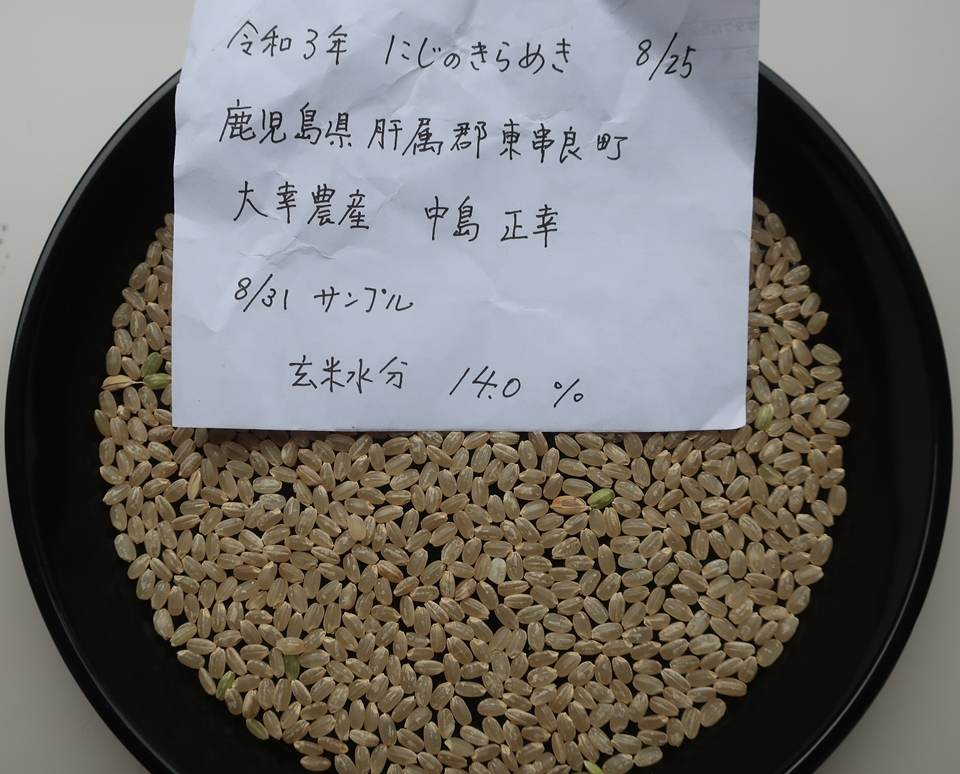 令和3年 にじのきらめき 8/25
鹿児島県 肝属郡東串良町
大幸農産 中島 正幸
8/31 サンプル
玄米水分 14.0 %